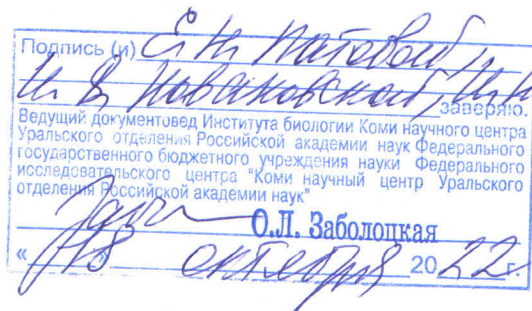 Подпись (и) Е.Н. Патовой,
И.В. Новаковской,
заверяю.
Ведущий документовед Института биологии Коми научного центра
Уральского отделения Российской академии наук Федерального
государственного бюджетного учреждения науки Федерального
исследовательского центра "Коми научный центр Уральского
отделения Российской академии наук"
О.Л. Заболоцкая
«18 октября 2022 г.